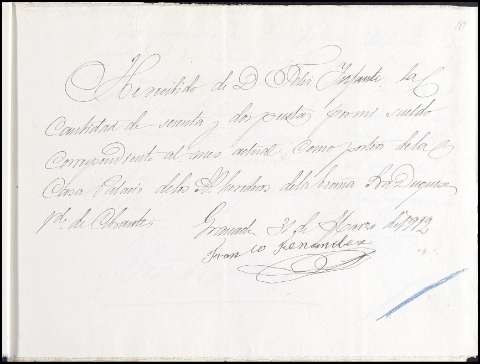 10
He recibido de D. Felix Infante la
Cantidad de sesenta y dos pesetas por mi sueldo
correspondiente al mes actual, como portero de la
Casa Palacio de los Herederos de la Excma Sra Duquesa
de Abrantes
Granada 31 de Marzo de 1912
Fran co Fernandez